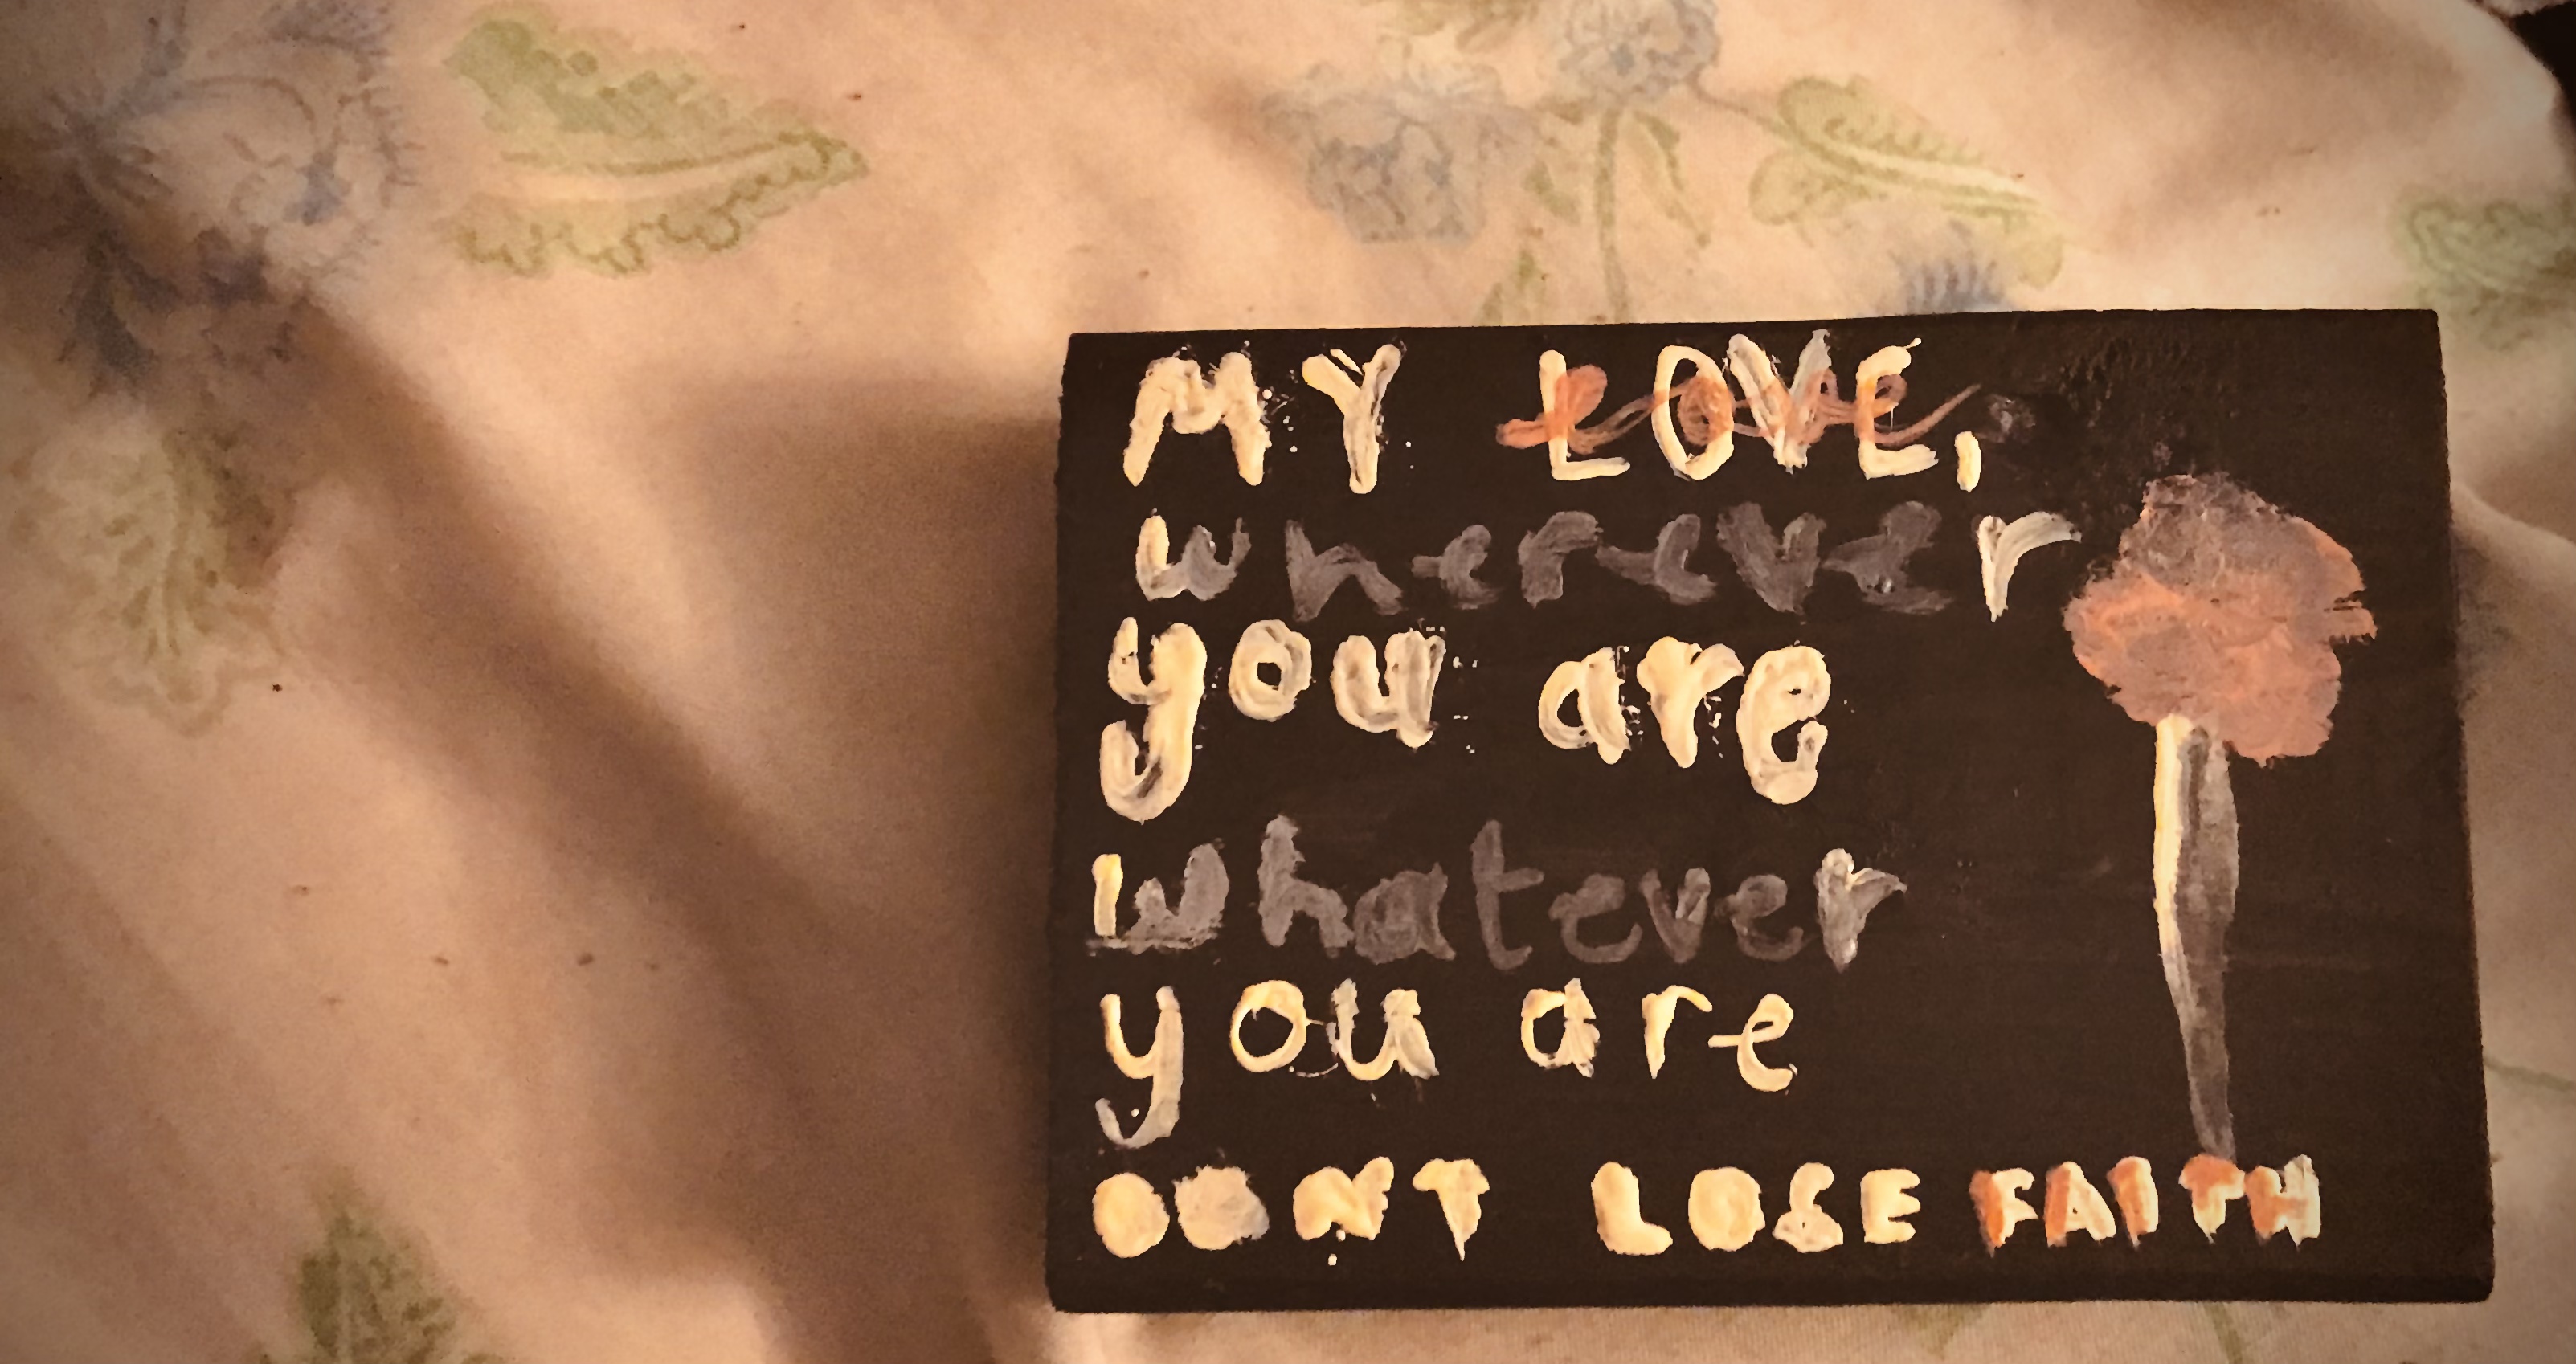 MY LOVE,
wherever
you are
whatever
you are
DONT LOSE FAITH